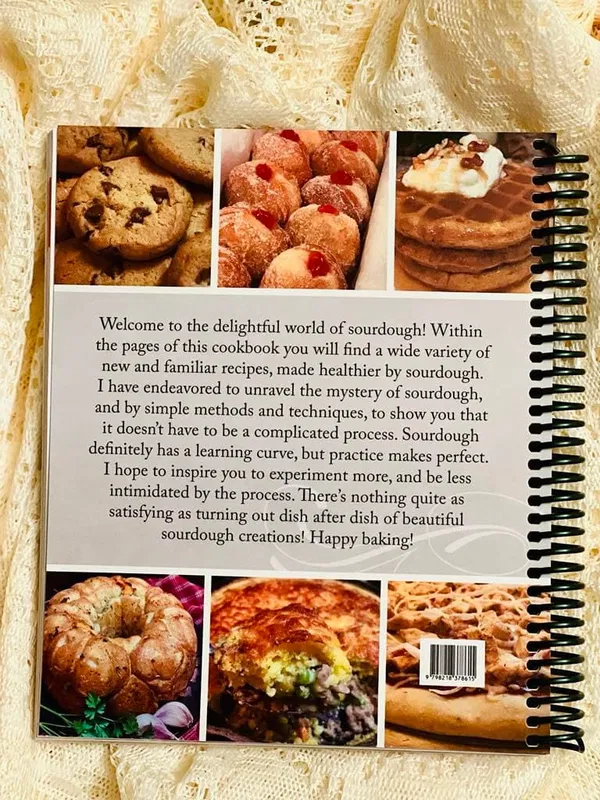 Welcome to the delightful world of sourdough! Within
the pages of this cookbook you will find a wide variety of
new and familiar recipes, made healthier by sourdough.
I have endeavored to unravel the mystery of sourdough,
and by simple methods and techniques, to show you that
it doesn't have to be a complicated process. Sourdough
definitely has a learning curve, but practice makes perfect.
I hope to inspire you to experiment more, and be less
intimidated by the process. There's nothing quite as
satisfying as turning out dish after dish of beautiful
sourdough creations! Happy baking!
9 798218 378615